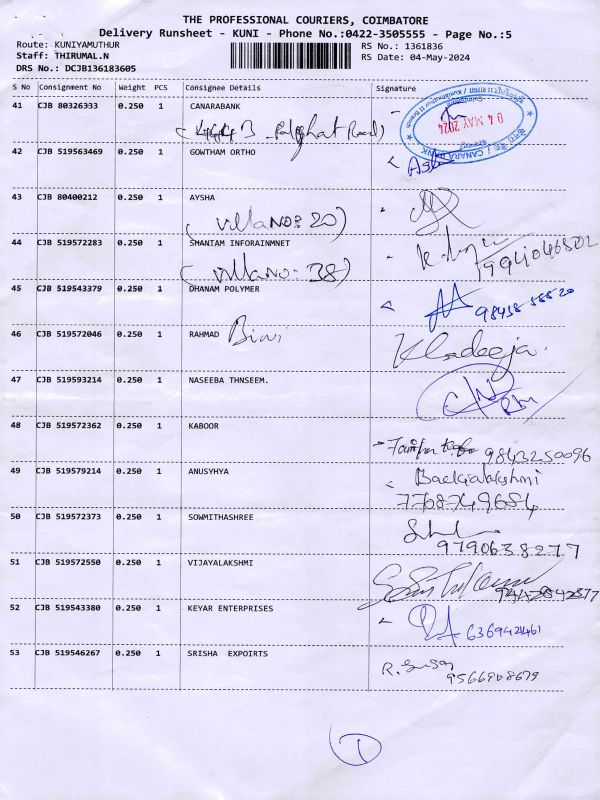 THE PROFESSIONAL COURIERS, COIMBATORE
Delivery Runsheet - KUNI - Phone No.:0422-3505555 - Page No.:5
Route: KUNIYAMUTHUR RS No.: 1361836
Staff: THIRUMAL.N RS Date: 04-May-2024
DRS No.: DCJB136183605
S No Consignment No Weight PCS Consignee Details Signature
41 CJB 80326333 0.250 1 CANARABANK
04 MAY 2024
CANARA BANK
42 CJB 519563469 0.250 1 GOWTHAM ORTHO
43 CJB 80400212 0.250 1 AYSHA
(villa NO: 20)
44 CJB 519572283 0.250 1 SHANTAM INFORAINMNET
(villa NO: 38)
45 CJB 519543379 0.250 1 DHANAM POLYMER
46 CJB 519572046 0.250 1 RAHMAD Khadeeja.
47 CJB 519593214 0.250 1 NASEEBA THNSEEM.
48 CJB 519572362 0.250 1 KABOOR 9843250096
49 CJB 519579214 0.250 1 ANUSYHYA
7708749684
50 CJB 519572373 0.250 1 SOWMITHASHREE
9790638277
51 CJB 519572550 0.250 1 VIJAYALAKSHMI
52 CJB 519543380 0.250 1 KEYAR ENTERPRISES
53 CJB 519546267 0.250 1 SRISHA EXPOIRTS